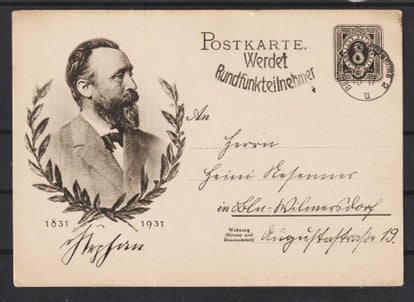 POSTKARTE.
Werdet
Rundfunkteilnehmer
8
An
Herrn
Heini
in Bln-Wilmersdorf
Wohnung
(Strasse und
Hausnummer)
Augustastraße 19.
1831 1931
Stephan